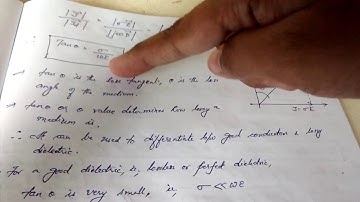 |J| / |J| = |σE| / |jωE|
Tan θ = σ / ωε
J = σE
→ tan θ is the loss tangent, θ is the loss
angle of the medium.
→ tan θ or θ value determines how lossy a
medium is.
∴ It can be used to differentiate b/w good conductor & lossy
dielectric.
→ For a good dielectric, ie, lossless or perfect dielectric,
tan θ is very small, ie, σ << ωε